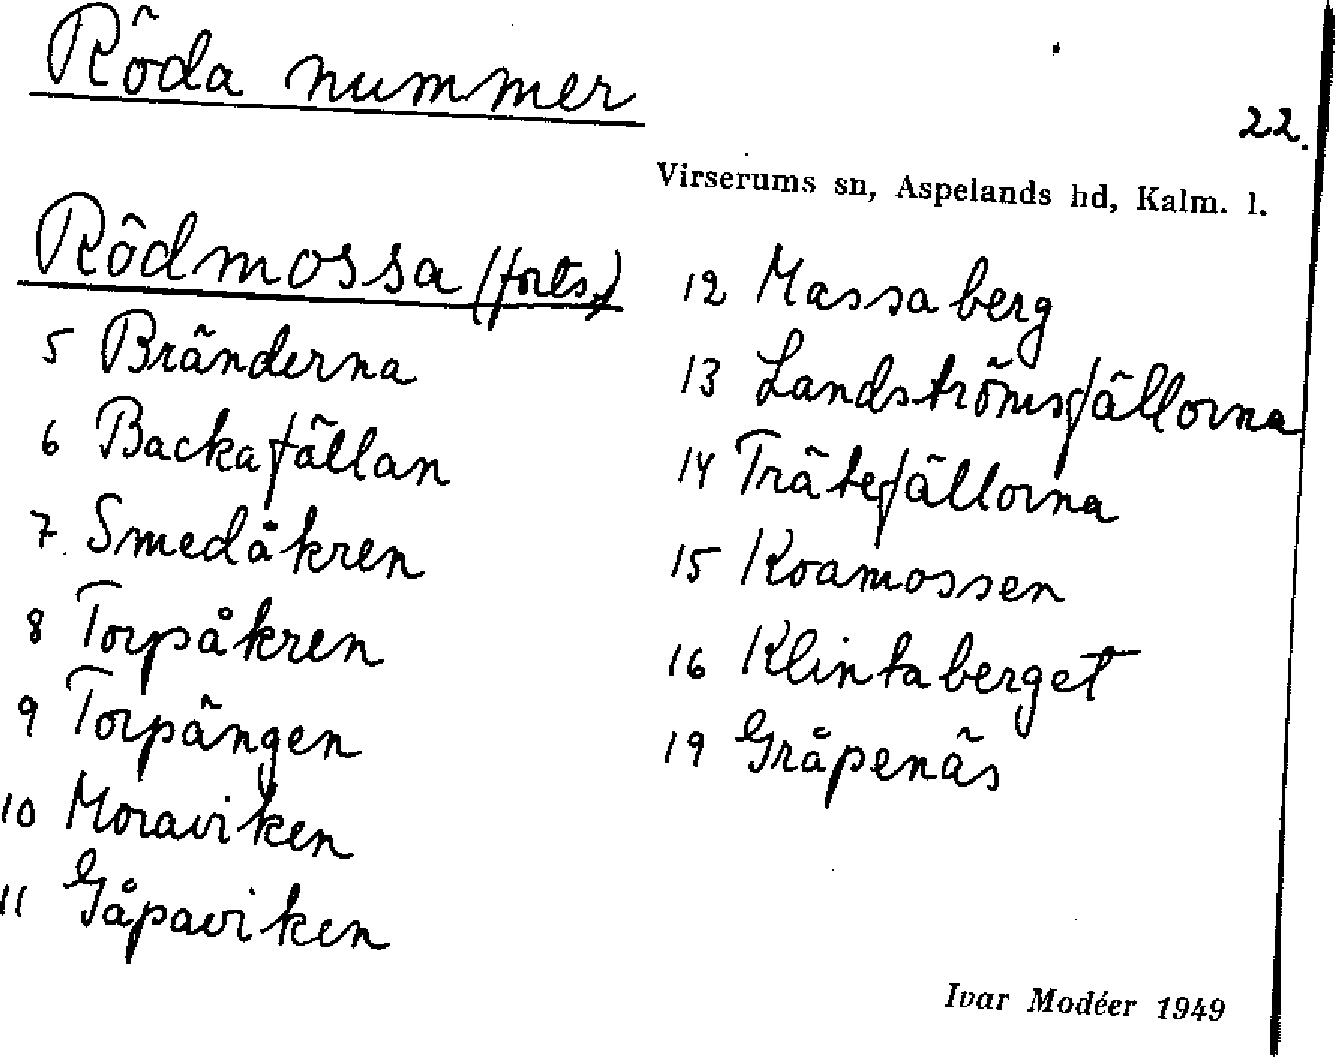 Röda nummer
22.
Virserums sn, Aspelands hd, Kalm. l.
Rödmossa (forts.)
5 Bränderna
6 Backafällan
7. Smedåkren
8 Torpåkren
9 Torpängen
10 Moraviken
11 Gåpaviken
12 Massaberg
13 Landströmsfällorna
14 Trätefällorna
15 Koamossen
16 Klintaberget
19 Gråpenäs
Ivar Modéer 1949